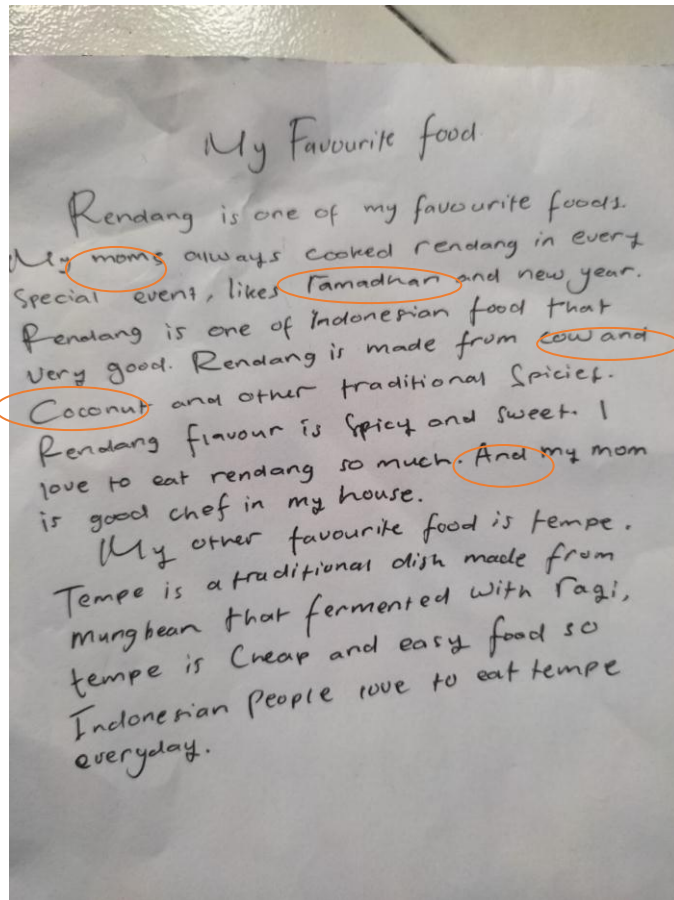 My Favourite food.
Rendang is one of my favourite foods.
My moms always cooked rendang in every
Special event, likes ramadhan and new year.
Rendang is one of Indonesian food that
very good. Rendang is made from cow and
Coconut and other traditional Spicies.
Rendang flavour is spicy and sweet. I
love to eat rendang so much. And my mom
is good chef in my house.
My other favourite food is tempe.
Tempe is a traditional dish made from
mungbean that fermented with ragi,
tempe is Cheap and easy food so
Indonesian People love to eat tempe
everyday.